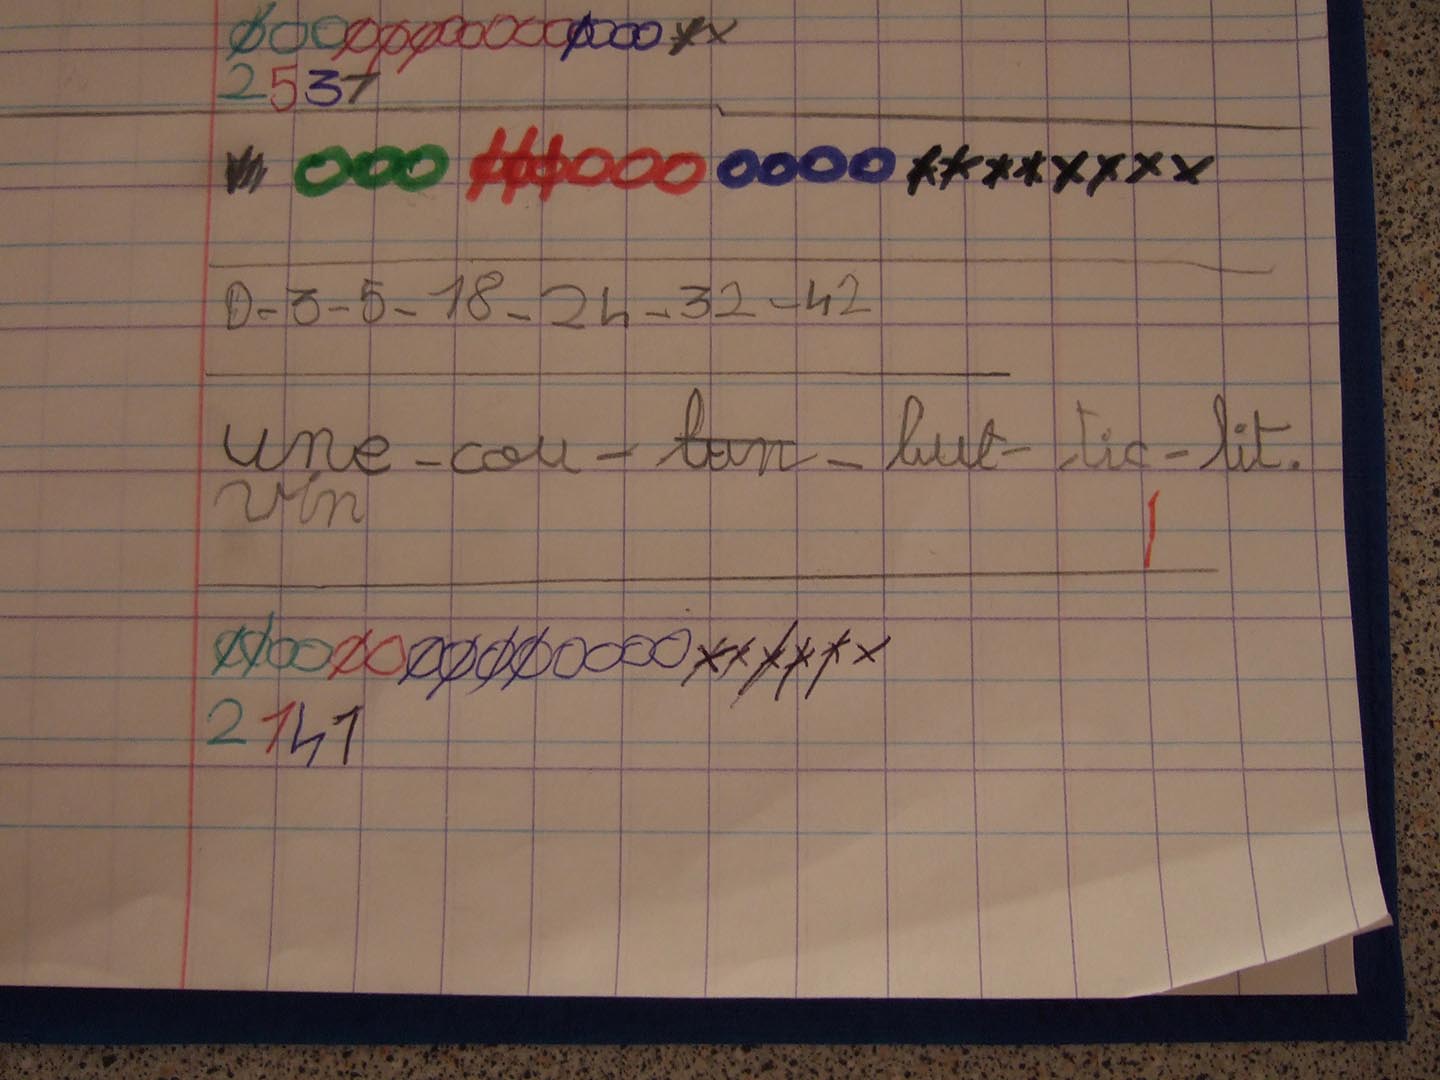 2537
0-3-5-18-24-32-42
une-cou-tan-but-tic-lit.
vin
2141